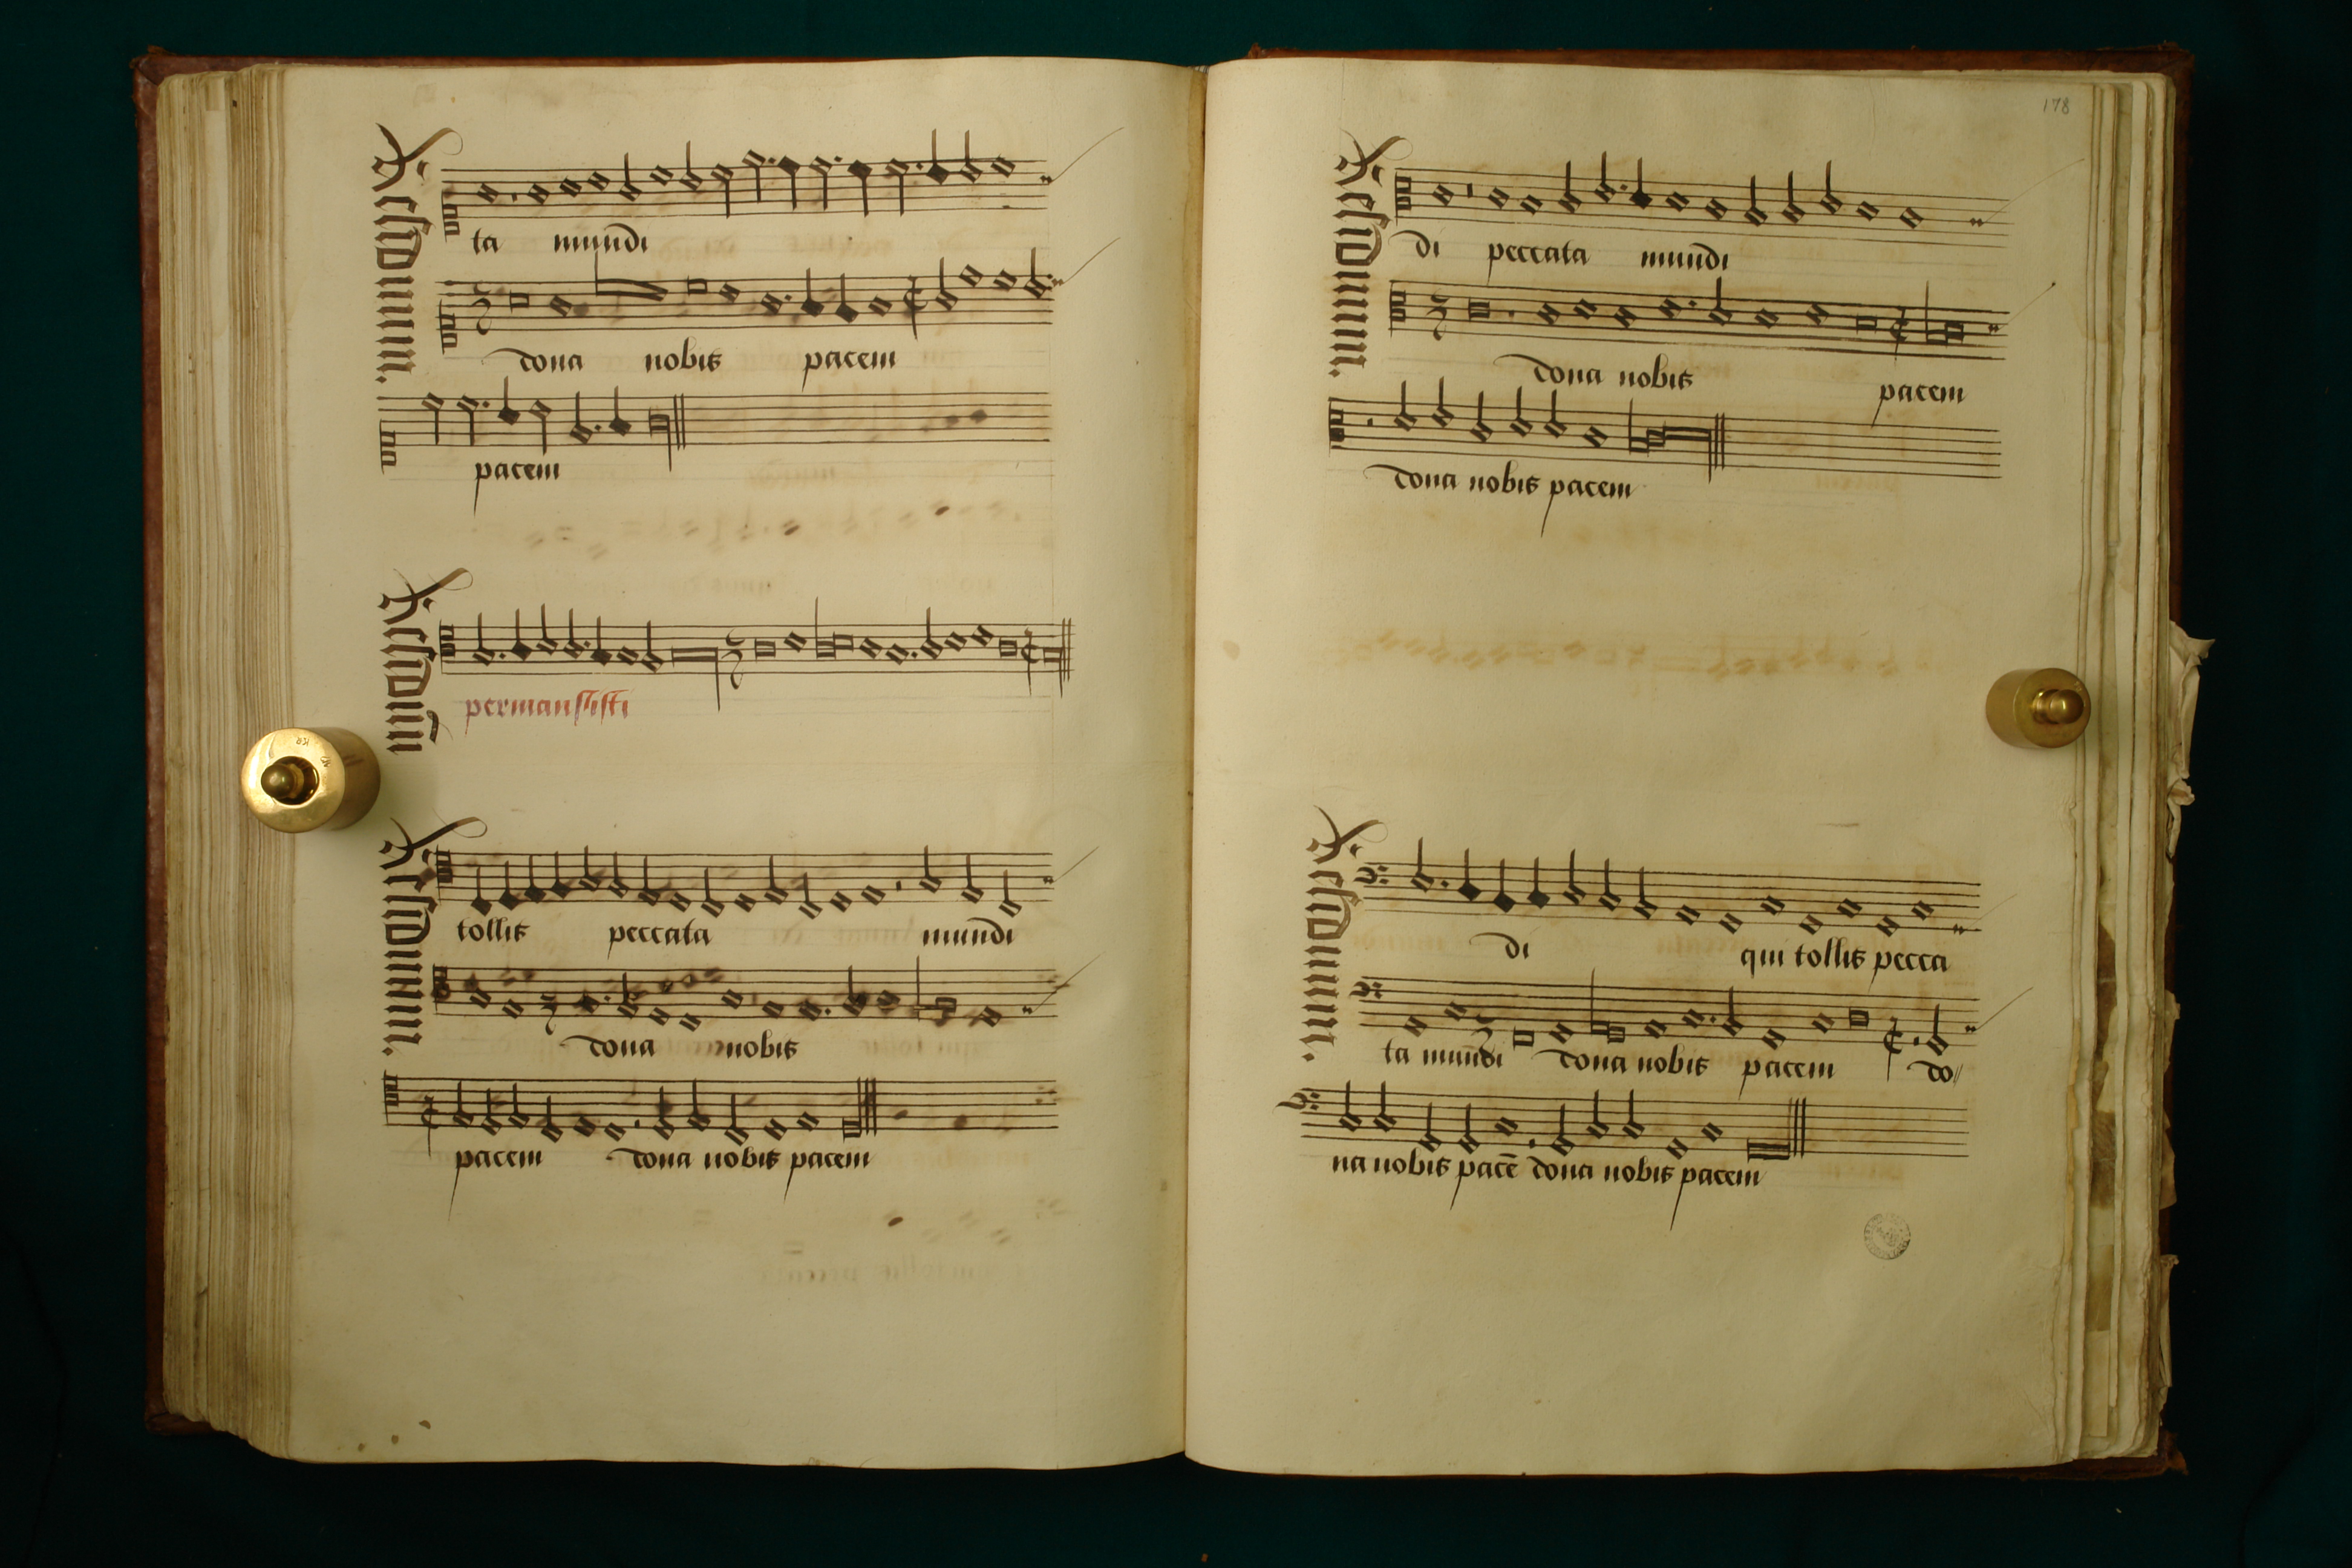 Residuum.
ta mundi
dona nobis pacem
pacem
Residuū
permansisti
Residuum.
tollis peccata mundi
dona nobis
pacem dona nobis pacem
178
Residuum.
di peccata mundi
dona nobis pacem
dona nobis pacem
Residuum.
di qui tollis pecca
ta mundi dona nobis pacem do//
na nobis pacē dona nobis pacem